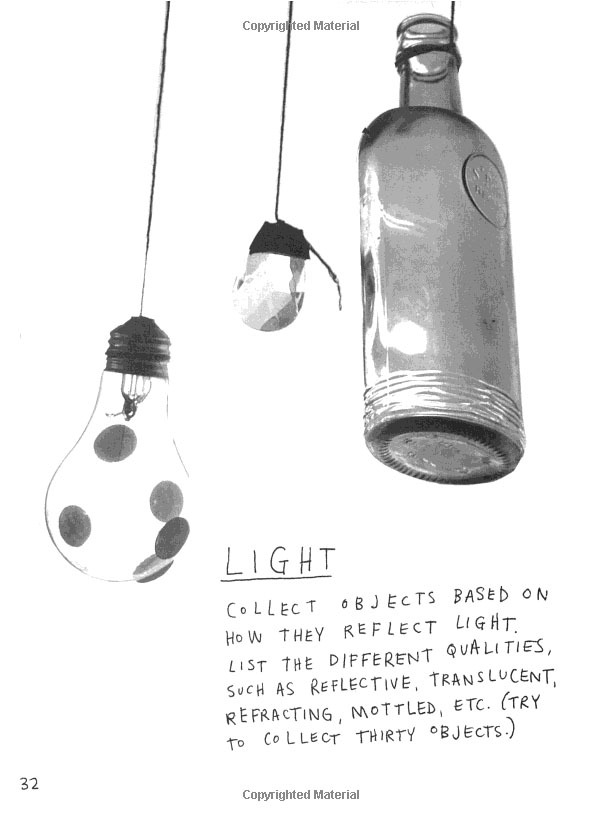 Copyrighted Material
LIGHT
COLLECT OBJECTS BASED ON
HOW THEY REFLECT LIGHT.
LIST THE DIFFERENT QUALITIES,
SUCH AS REFLECTIVE, TRANSLUCENT,
REFRACTING, MOTTLED, ETC. (TRY
TO COLLECT THIRTY OBJECTS.)
32
Copyrighted Material